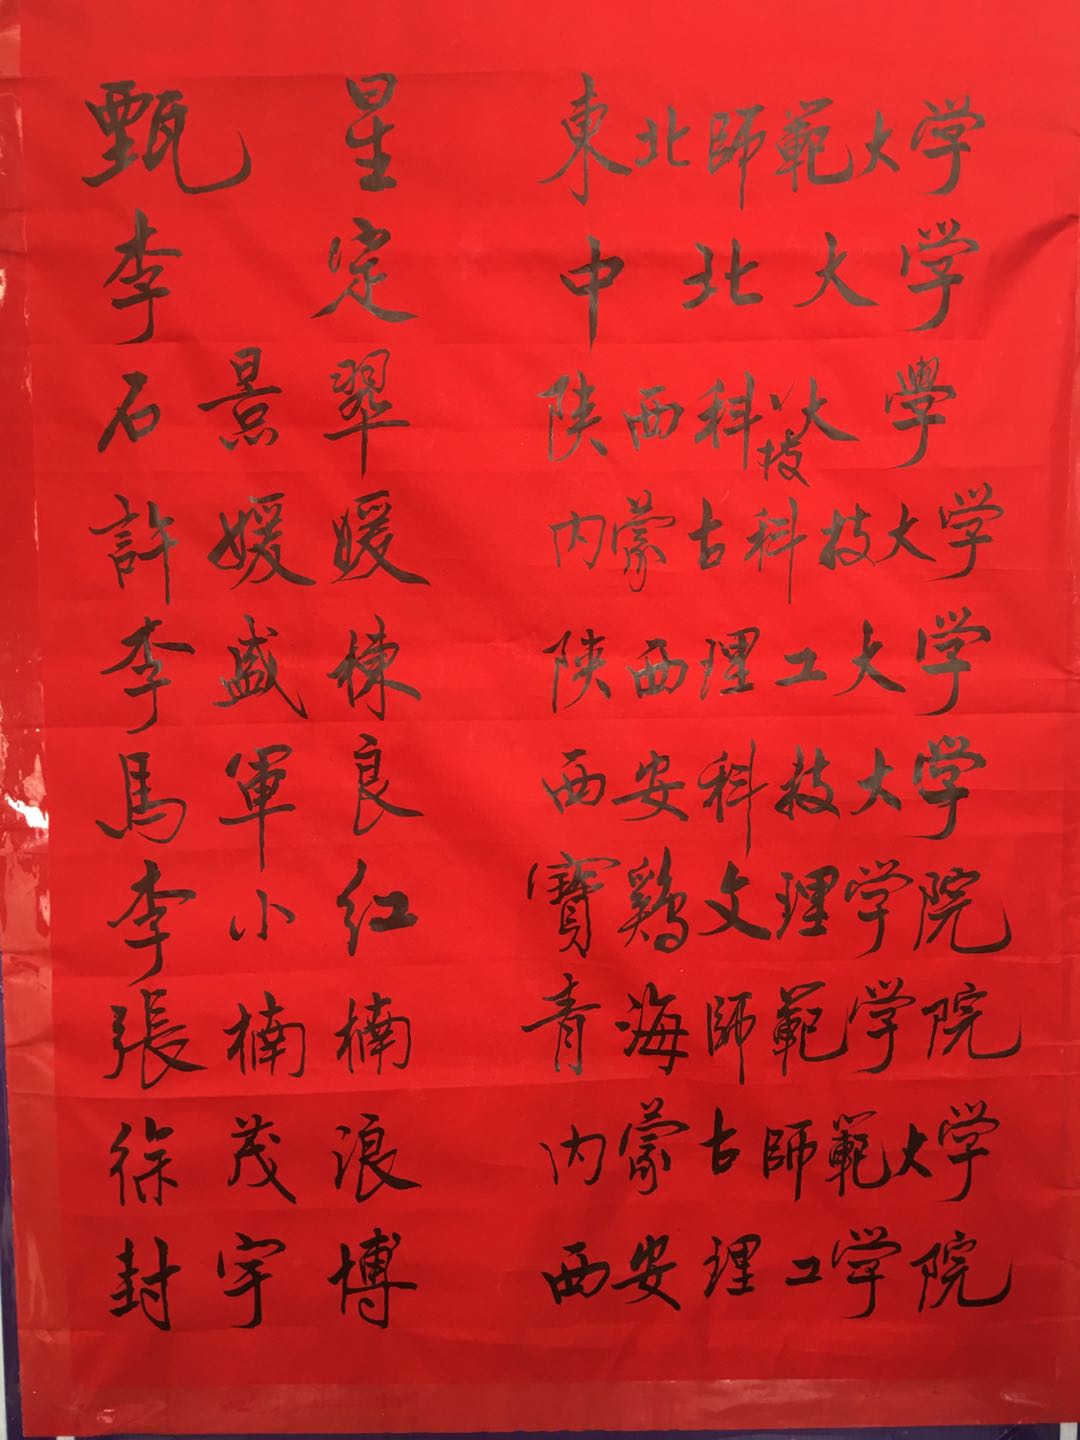 甄星 東北師範大学
李定 中北大学
石景翠 陕西科技大學
許媛媛 内蒙古科技大学
李盛棟 陕西理工大学
馬軍良 西安科技大学
李小红 寳鷄文理学院
張楠楠 青海師範学院
徐茂浪 内蒙古師範大学
封宇博 西安理工学院